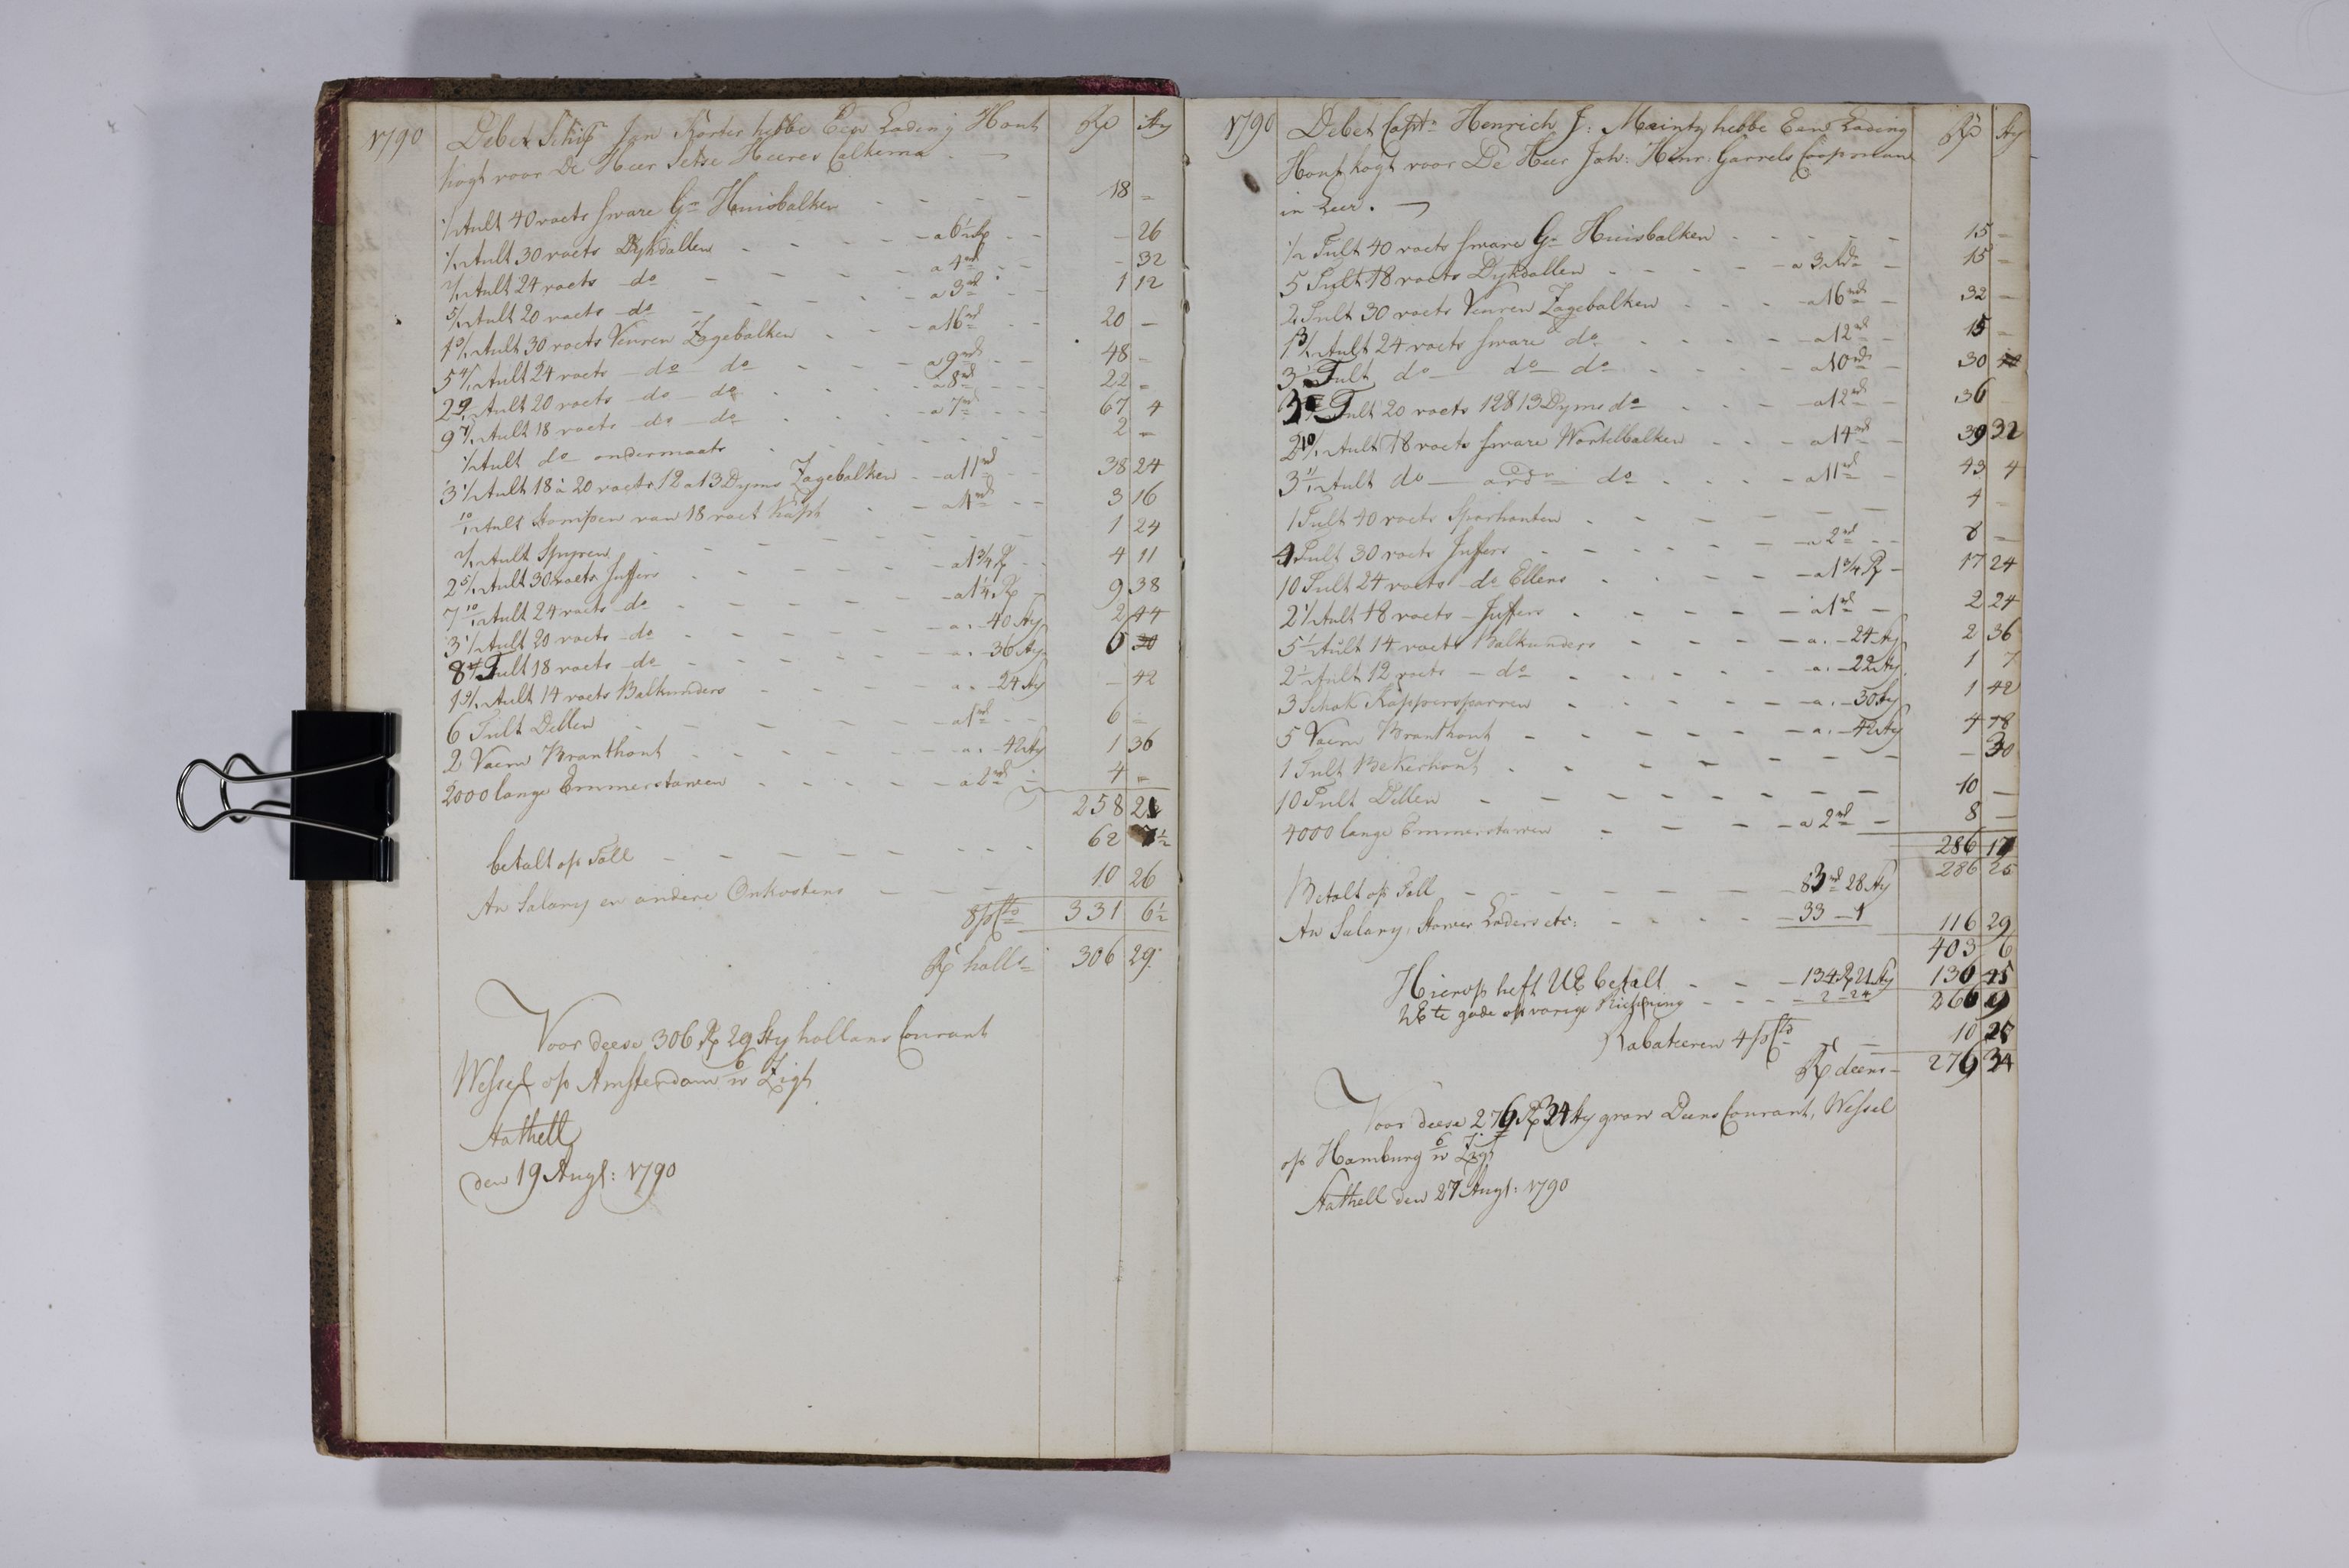 1790 Debet Schip Jan Korter hebbe Een Lading Hout Rd Sty
kogt voor De Heer Jetse Heeres Calkema
1/2 Tult 40 voets sware Gr Huisbalken 18 -
1/2 Tult 30 voets Dykdallen a 6½ Rd - 26
2/12 Tult 24 voets do a 4rd - 32
5/12 Tult 20 voets do a 3rd 1 12
1 3/12 Tult 30 voets Veuren Zagebalken a 16rd 20 -
5 4/12 Tult 24 voets do do a 9rd 48 -
2 9/12 Tult 20 voets do do a 8rd 22 -
9 7/12 Tult 18 voets do do a 7rd 67 4
Tult do ondermaats 2 -
3 1/2 Tult 18 a 20 voets 12 a 13 Dyms Zagebalken a 11rd 38 24
10/12 Tult Stompen van 18 voet a 4rd 3 16
Tult Spyren 1 24
2 5/12 Tult 30 voets Juffers a 1¾ Rd 4 11
7 10/12 Tult 24 voets do a 1¼ Rd 9 38
3 1/2 Tult 20 voets do a - 40 Sty 2 44
8 Tult 18 voets do a - 36 Sty 6
1 9/12 Tult 14 voets Balkunders a - 24 Sty - 42
6 Tult Dellen a 1rd 6 -
2 Vaem Branthout a - 42 Sty 1 36
2000 lange Emmerstaween a 2rd 4 -
258 21
betalt op Toll 62 ½
An Salary en andere Onkostens 10 26
8 p Cto 331 6½
Rd holls 306 29
Voor deese 306 Rd 29 Sty hollans Courant
Wessel op Amsterdam 6 w Zigt
Stathell
den 19 Augt: 1790
1790 Debet Captn Henrich J: Meints hebbe Een Lading Rd Sty
Hout kogt voor De Heer Joh: Hinr: Garrels Coopman
in Leer.
1/2 Tult 40 voets sware Gr Huisbalken 15 -
5 Tult 18 voets Dykdallen a 3 Rd 15 -
2 Tult 30 voets Veuren Zagebalken a 16rd 32 -
1 3/12 Tult 24 voets sware do a 12rd 15 -
3 Tult do do do a 10rd 30
3 Tult 20 voets 12 & 13 Dyms do a 12rd 36
2 10/12 Tult 18 voets sware Wortelbalken a 14rd 39 32
3 11/12 Tult do ordn do a 11rd 43 4
1 Tult 40 voets Sparhouten 4 -
4 Tult 30 voets Juffers a 2rd 8 -
10 Tult 24 voets do Ellens a 1¾ Rd 17 24
2 1/2 Tult 18 voets Juffers a 1rd 2 24
5 1/2 Tult 14 voets Balkunders a - 24 Sty 2 36
2 1/2 Tult 12 voets do a - 22 Sty 1 7
3 Schok Kappersparren a - 30 Sty 1 42
5 Vaem Branthout a - 42 Sty 4 18
1 Tult Bekerhout - 30
10 Tult Dellen 10 -
4000 lange Emmerstaween a 2rd 8 -
286 17
286 25
Betalt op Toll 83rd 28 Sty
An Salary, Stower Laders etc: 33 - 1 116 29
403 6
Hierop heft UE betalt 134 Rd 21 Sty 136 45
UE te gode op vorige Rickning 2 - 24 266 9
Rabateeren 4 p Cto 10 25
Rd deens 276 34
Voor deese 276 Rd 34 Sty grow Deens Courant, Wessel
op Hamburg 6 w Zigt
Stathell den 27 Augt: 1790